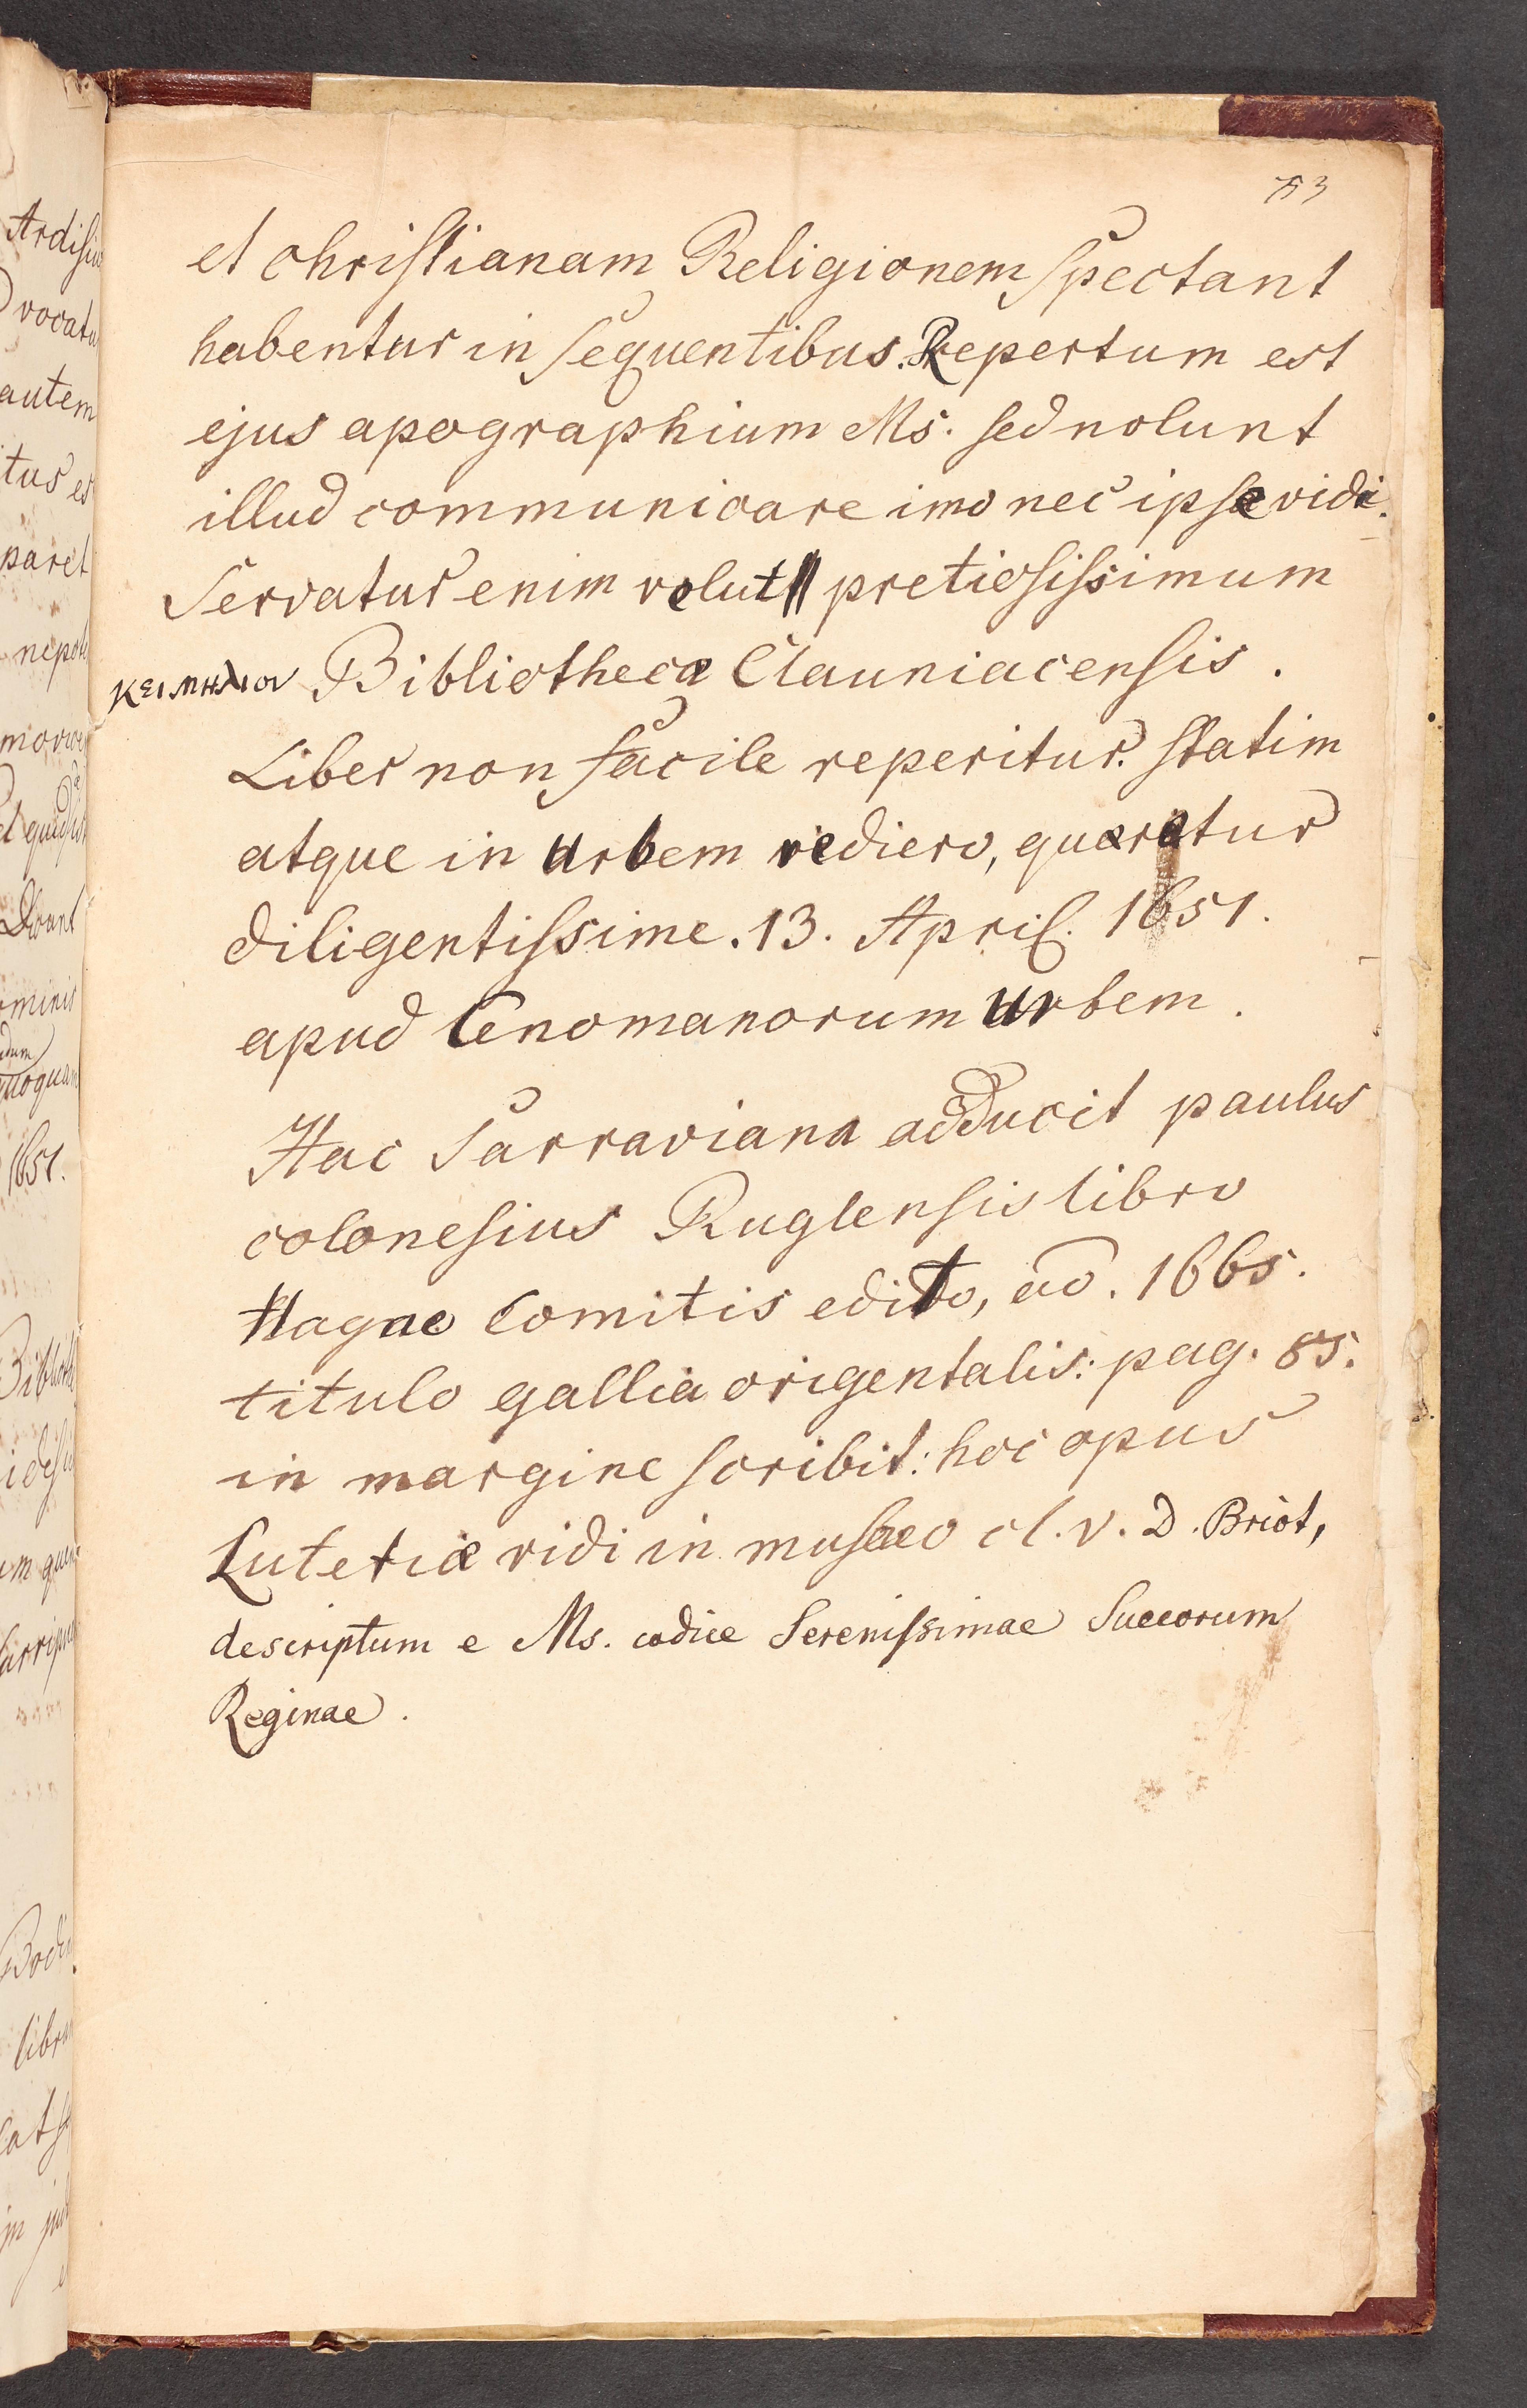 73
et christianam Religionem spectant
habentur in sequentibus. Repertum est
ejus apographium Ms. sed nolunt
illud communicare imo nec ipse vidi.
Servatur enim velut pretiosissimum
κειμηλιον Bibliothecæ Clauniacensis.
Liber non facile reperitur. Statim
atque in Urbem rediero, quæretur
diligentissime. 13. April. 1651.
apud Cenomanorum Urbem.
Hac Sarraviana adducit paulus
colonesius Ruglensis libro
Hagae Comitis edito, aō. 1665.
titulo gallia origentalis: pag. 85.
in margine scribit: hoc opus
Lutetiæ vidi in musaeo cl. v. D. Briot,
descriptum e Ms. codice Serenissimae Suecorum
Reginae.
Ardisiu
vocatu
autem
itus es
paret
nepote
dount
ominis
quoquam
1651.